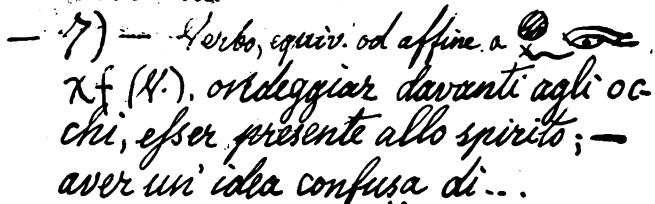 — 7) — Verbo, equiv. od affine a
χf (V.). ondeggiar davanti agli oc-
chi, esser presente allo spirito; —
aver un' idea confusa di...